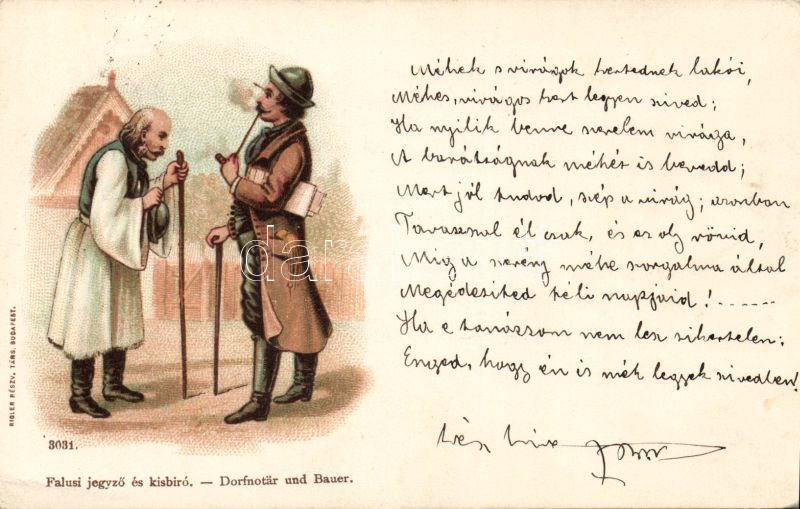 Méhek s virágok kertednek lakói,
Méhes, virágos kert legyen szived;
Ha nyilik benne szerelem virága,
A barátságnak méhét is bevedd;
Mert jól tudod, szép a virág; azonban
Tavasszal él csak, és az oly rövid,
Mig a szerény méhe szorgalma által
Megédesited téli napjaid! ------
Ha e tanácsom nem lesz sikertelen:
Enged, hogy én is méh legyek szivedben!
kész hive
RIGLER RÉSZV. TÁRS. BUDAPEST.
3031.
Falusi jegyző és kisbiró. — Dorfnotär und Bauer.
darabanth